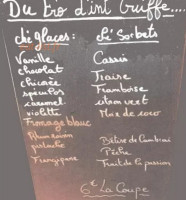 Du Bio d'int Griffe....
ché glaces: ché Sorbets
Vanille Cassis
chocolat Fraise
chicorée Framboise
spéculos citron vert
caramel Mar de coco
violette
Fromage blanc
Rhum raisin Bêtise de Cambrai
pistache Pêche
Frangipane Fruit de la passion
6€ La Coupe